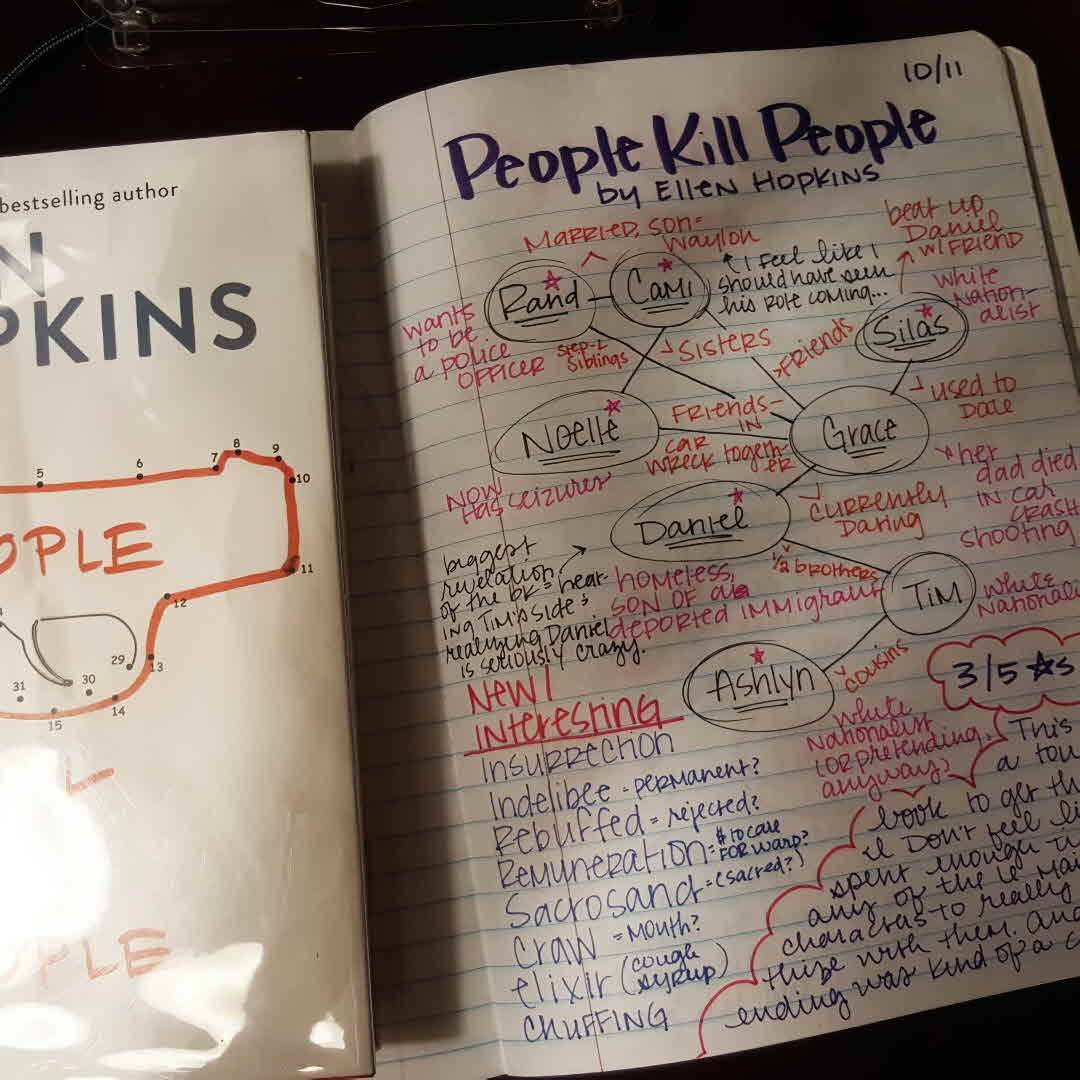 bestselling author
N
PKINS
5
6
7
8
9
10
11
OPLE
12
29
13
31
30
15
14
OPLE
10/11
People Kill People
by Ellen Hopkins
Married, son=
Waylon
beat up
Daniel
w/ friend
Rand
Cami
I feel like I
should have seen
his role coming...
white
nation-
alist
Silas
wants
to be
a police
officer
step-
siblings
Sisters
Friends
used to
Date
Noelle
Friends-
in
car
wreck togeth-
er
Grace
Now
has seizures
her
dad died
in car
crash
shooting
Daniel
currently
Dating
biggest
revelation
of the bk = hear-
ing Tim's side &
realizing Daniel
is seriously crazy.
homeless,
son of a
deported immigrant
1/2 brothers
Tim
white
Nationali
Ashlyn
cousins
3/5 ★s
New/
Interesting
white
Nationalist
(or pretending
anyway?
Insurrection
Indelibee = permanent?
Rebuffed = rejected?
Remuneration = $ to care
forward?
Sacrosanct = (sacred?)
Craw = mouth?
elixir (cough
syrup)
Chuffing
This
a tou
book to get th
I Don't feel li
spent enough ti
any of the 6 mai
characters to really
thize with them. And
ending was kind of a c